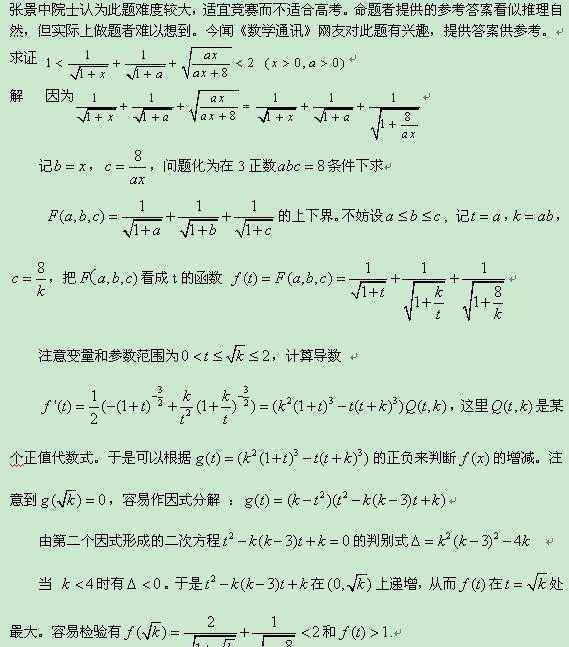 张景中院士认为此题难度较大，适宜竞赛而不适合高考。命题者提供的参考答案看似推理自
然，但实际上做题者难以想到。今闻《数学通讯》网友对此题有兴趣，提供答案供参考。
求证 1 < 1/√(1+x) + 1/√(1+a) + √(ax/(ax+8)) < 2 (x>0, a>0)
解 因为 1/√(1+x) + 1/√(1+a) + √(ax/(ax+8)) = 1/√(1+x) + 1/√(1+a) + 1/√(1+8/(ax))
记b=x，c=8/(ax)，问题化为在3正数abc=8条件下求
F(a,b,c) = 1/√(1+a) + 1/√(1+b) + 1/√(1+c) 的上下界。不妨设a≤b≤c，记t=a，k=ab，
c=8/k，把F(a,b,c)看成t的函数 f(t)=F(a,b,c)= 1/√(1+t) + 1/√(1+k/t) + 1/√(1+8/k)
注意变量和参数范围为0<t≤√k≤2，计算导数
f'(t)=1/2(-(1+t)^(-3/2) + k/t²(1+k/t)^(-3/2)) = (k²(1+t)³-t(t+k)³)Q(t,k)，这里Q(t,k)是某
个正值代数式。于是可以根据g(t)=(k²(1+t)³-t(t+k)³)的正负来判断f(x)的增减。注
意到g(√k)=0，容易作因式分解：g(t)=(k-t²)(t²-k(k-3)t+k)
由第二个因式形成的二次方程t²-k(k-3)t+k=0的判别式Δ=k²(k-3)²-4k
当 k<4时有Δ<0。于是t²-k(k-3)t+k在(0,√k)上递增，从而f(t)在t=√k处
最大。容易检验有f(√k)=2/√(1+√k) + 1/√(1+8/k) <2和f(t)>1.